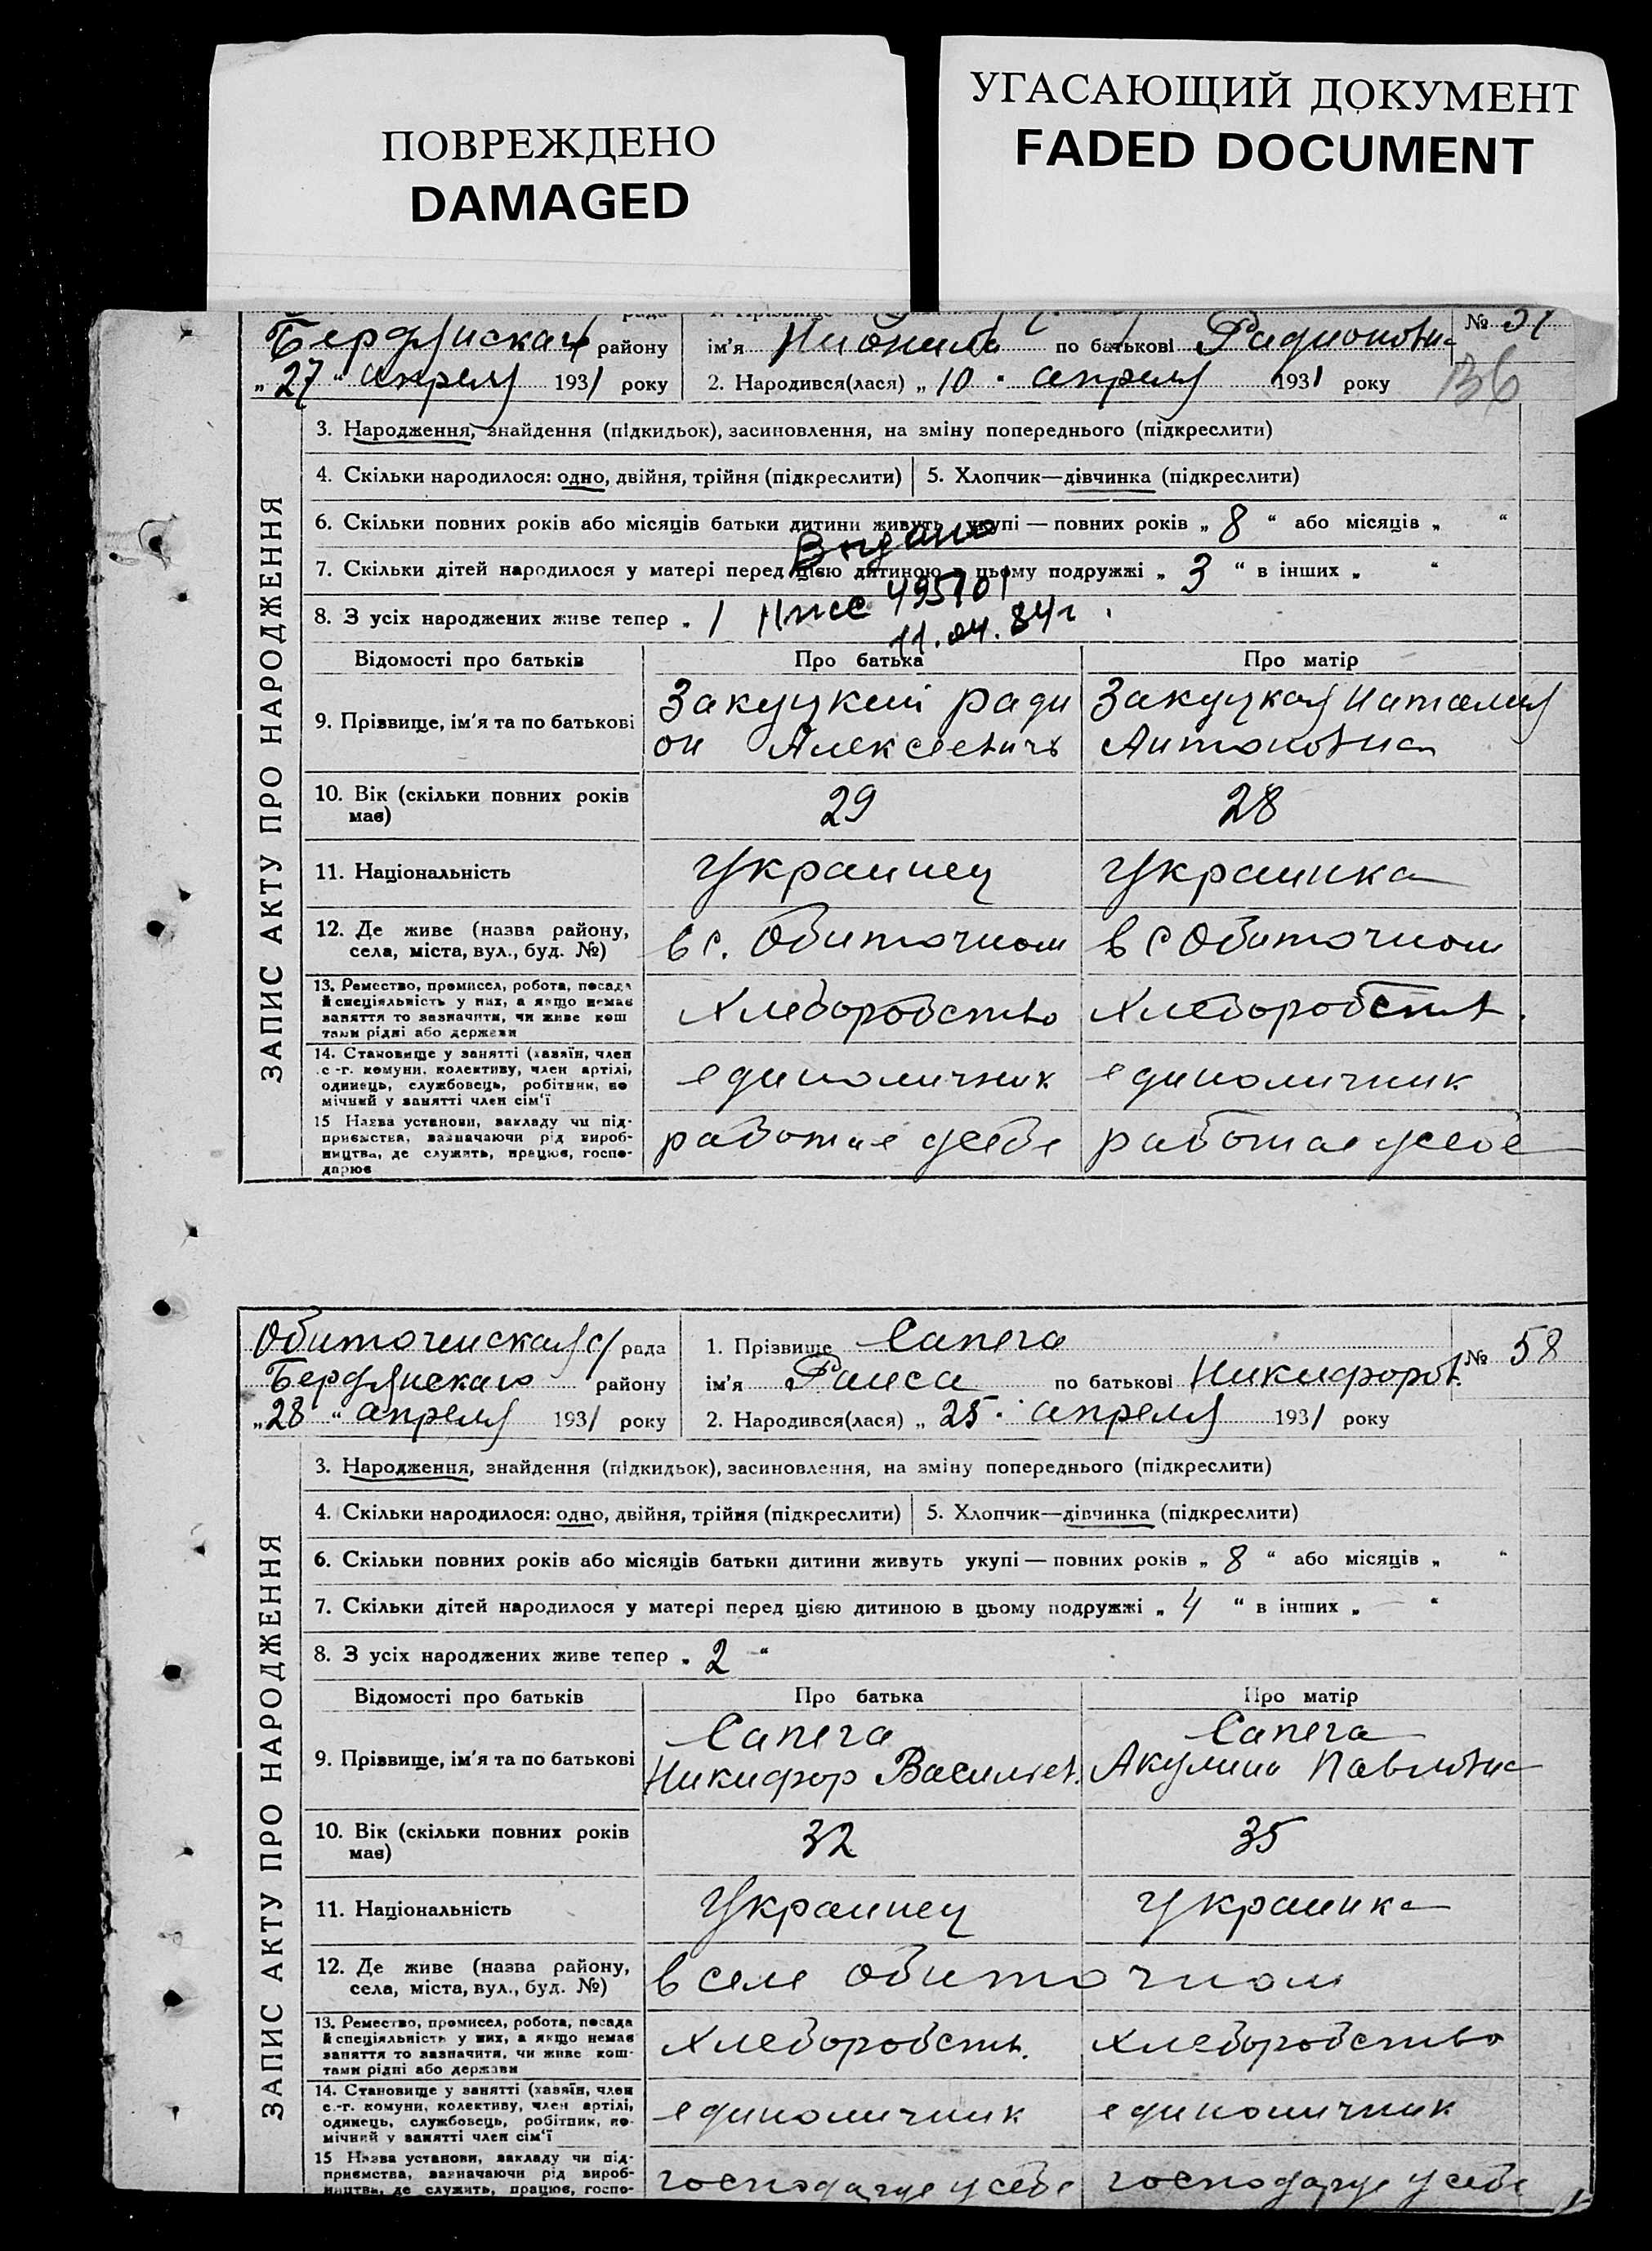 ПОВРЕЖДЕНО
DAMAGED
УГАСАЮЩИЙ ДОКУМЕНТ
FADED DOCUMENT
рада
Бердянскаго району
„27“ апреля 1931 року
1. Прізвище
ім'я по батькові Радионовна
2. Народився(лася) „10“ апреля 1931 року
№ 57
136
ЗАПИС АКТУ ПРО НАРОДЖЕННЯ
3. Народження, знайдення (підкидьок), засиновлення, на зміну попереднього (підкреслити)
4. Скільки народилося: одно, двійня, трійня (підкреслити) 5. Хлопчик—дівчинка (підкреслити)
6. Скільки повних років або місяців батьки дитини живуть укупі — повних років „ 8 “ або місяців „ “
Выдано
7. Скільки дітей народилося у матері перед цією дитиною в цьому подружжі „ 3 “ в інших „ “
8. З усіх народжених живе тепер „ 1
495701
11.04.84г.
Відомості про батьків Про батька Про матір
9. Прізвище, ім'я та по батькові
Закуцкий Ради
он Алексеевичъ
Закуцкая Наталия
Антоновна
10. Вік (скільки повних років має) 29 28
11. Національність Украинец Украинка
12. Де живе (назва району, села, міста, вул., буд. №) в с. Обиточном в с Обиточном
13. Ремество, промисел, робота, посада й спеціяльність у них, а якщо немає заняття то зазначити, чи живе кош тами рідні або держави
Хлеборобство Хлеборобств.
14. Становище у занятті (хазяїн, член с.-г. комуни, колективу, член артілі, одинець, службовець, робітник, по мічний у занятті член сім'ї
единоличник единоличник
15 Назва установи, закладу чи під-
приємства, зазначаючи рід вироб-
ництва, де служить, працює, госпо-
дарює
работае усебе работае усебе
Обиточенская с/ рада
Бердянскаго району
„28“ апреля 1931 року
1. Прізвище Сапега
ім'я Раиса по батькові Никифоров.
2. Народився(лася) „25“ апреля 1931 року
№ 58
ЗАПИС АКТУ ПРО НАРОДЖЕННЯ
3. Народження, знайдення (підкидьок), засиновлення, на зміну попереднього (підкреслити)
4. Скільки народилося: одно, двійня, трійня (підкреслити) 5. Хлопчик—дівчинка (підкреслити)
6. Скільки повних років або місяців батьки дитини живуть укупі — повних років „ 8 “ або місяців „ “
7. Скільки дітей народилося у матері перед цією дитиною в цьому подружжі „ 4 “ в інших „ — “
8. З усіх народжених живе тепер „ 2 “
Відомості про батьків Про батька Про матір
9. Прізвище, ім'я та по батькові
Сапега
Никифор Васильев.
Сапега
Акулина Павловна
10. Вік (скільки повних років має) 32 35
11. Національність Украинец Украинка
12. Де живе (назва району, села, міста, вул., буд. №) в селе Обиточном
13. Ремество, промисел, робота, посада й спеціяльність у них, а якщо немає заняття то зазначити, чи живе кош- тами рідні або держави
Хлеборобств. Хлеборобство
14. Становище у занятті (хазяїн, член с.-г. комуни, колективу, член артілі, одинець, службовець, робітник, по- мічний у занятті член сім'ї
единоличник единоличник
15 Назва установи, закладу чи під-
приємства, зазначаючи рід вироб-
ництва, де служить, працює, госпо-
господарує у себе господарує у себе